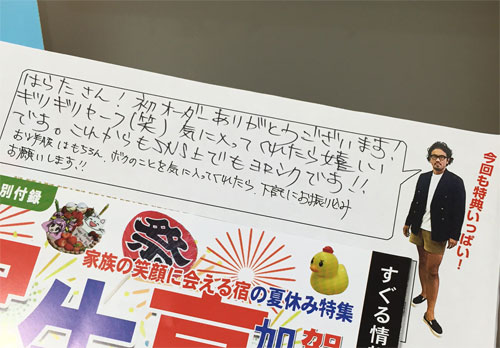 はらたさん!初オーダーありがとうございます!
ギリギリセーフ(笑)気に入ってくれたら嬉しい
です。これからもSNS上でもヨロシクです!!
お洋服はもちろん、ボクのことを気に入ってくれたら、下記にお振り込み
お願いします!!
今回も特典いっぱい!
別付録
祭
家族の笑顔に会える宿の夏休み特集
すぐる情